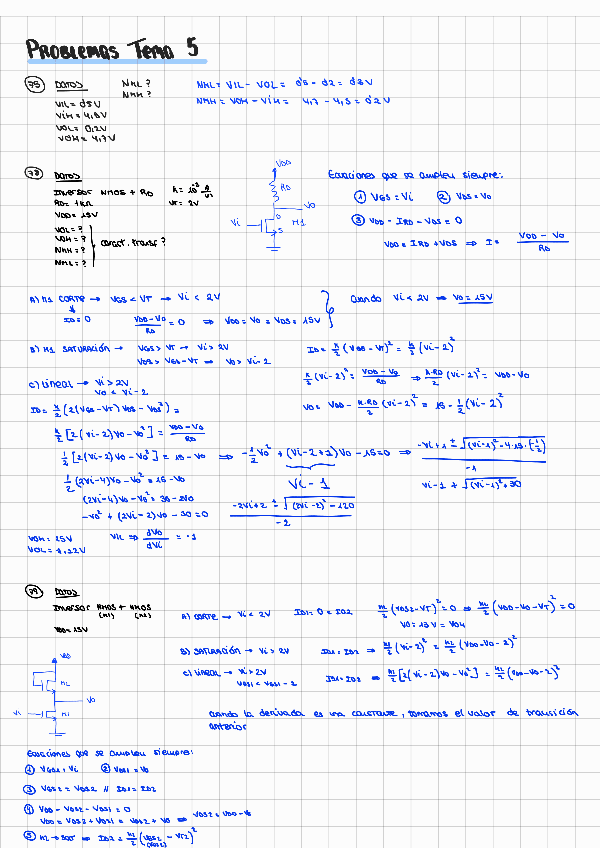 PROBLEMAS TEMA 5
75 DATOS NML? NML = VIL - VOL = 0'5 - 0'2 = 0'3V
NMH? NMH = VOH - VIH = 4,7 - 4,5 = 0'2V
VIL = 0'5V
VOL = 0,2V
VOH = 4,7V
78 DATOS
Inversor NMOS + RD
RD = 1kΩ VT = 2V
VDD = 15V
VOL = ?
VOH = ?
NMH = ?
NML = ?
caract. transf?
VDD
RD
Vo
Vi
M1
Ecuaciones que se cumplen siempre:
① VGS = Vi ② VDS = Vo
③ VDD - IRD - VDS = 0
VDD = IRD + VDS ⇒ I = (VDD - Vo)/RD
A) M1 CORTE → VGS < VT → Vi < 2V
ID = 0 (VDD - Vo)/RD = 0 ⇒ VDD = Vo = VDS = 15V
cuando Vi < 2V ⇒ Vo = 15V
B) M1 SATURACIÓN → VGS > VT → Vi > 2V
VDS > VGS - VT ⇒ Vo > Vi - 2
(Vi - 2)² = (VDD - Vo)/RD ⇒ K·RD/2 (Vi - 2)² = VDD - Vo
Vo = VDD - K·RD/2 (Vi - 2)² = 15 - 1/2 (Vi - 2)²
C) LINEAL → Vi > 2V
Vo < Vi - 2
ID = K/2 [2(VGS - VT) VDS - VDS²] =
K/2 [2(Vi - 2)Vo - Vo²] = (VDD - Vo)/RD
1/2 [2(Vi - 2)Vo - Vo²] = 15 - Vo ⇒ -1/2 Vo² + (Vi - 2 + 1)Vo - 15 = 0 ⇒
Vi - 1
1/2 (2Vi - 4)Vo - Vo² = 15 - Vo
(2Vi - 4)Vo - Vo² = 30 - 2Vo
-Vo² + (2Vi - 2)Vo - 30 = 0
-2Vi + 2 ± √((2Vi - 2)² - 120) / -2
VOH = 15V
VIL ⇒ dVo/dVi = -1
79 DATOS
Inversor NMOS + NMOS
(M1) (M2)
VDD = 15V
A) CORTE → Vi < 2V ID1 = 0 = ID2 K2/2 (VDS2 - VT)² = 0 ⇒ K2/2 (VDD - Vo - VT)² = 0
B) SATURACIÓN → Vi > 2V ID1 = ID2 ⇒ K1/2 (Vi - 2)² = K2/2 (VDD - Vo - 2)²
C) LINEAL → Vi > 2V
ID1 = ID2 ⇒ K1/2 [2(Vi - 2)Vo - Vo²] = K2/2 (VDD - Vo - 2)²
VDD
M2
Vo
Vi
M1
cuando la derivada es una constante, tomamos el valor de transición
anterior
Ecuaciones que se cumplen siempre:
① VGS1 = Vi ② VDS1 = Vo
③ VGS2 = VDS2 // ID1 = ID2
④ VDD - VDS2 - VDS1 = 0
VDD = VDS2 + VDS1 = VDS2 + Vo ⇒ VDS2 = VDD - Vo
⑤ M2 → SAT ⇒ ID2 = K2/2 (VGS2 - VT2)²
(VDS2)